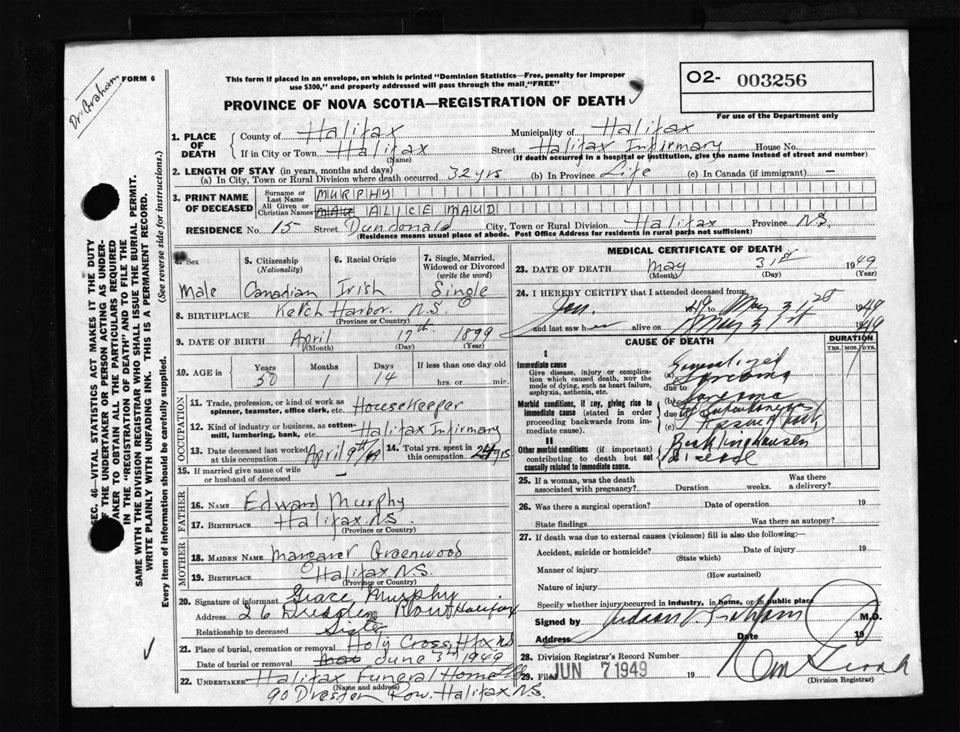 Dr. Graham
FORM 6
This form if placed in an envelope, on which is printed "Dominion Statistics—Free, penalty for improper
use $300," and properly addressed will pass through the mail, "FREE"
PROVINCE OF NOVA SCOTIA—REGISTRATION OF DEATH
O2- 003256
For use of the Department only
SEC. 46—VITAL STATISTICS ACT MAKES IT THE DUTY
OF THE UNDERTAKER OR PERSON ACTING AS UNDER-
TAKER TO OBTAIN ALL THE PARTICULARS REQUIRED
IN THE "REGISTRATION OF DEATH" AND TO FILE THE
SAME WITH THE DIVISION REGISTRAR WHO SHALL ISSUE THE BURIAL PERMIT.
WRITE PLAINLY WITH UNFADING INK. THIS IS A PERMANENT RECORD.
Every item of Information should be carefully supplied. (See reverse side for instructions.)
1. PLACE OF DEATH
County of Halifax Municipality of Halifax
If in City or Town Halifax Street Halifax Infirmary House No.
(Name) (If death occurred in a hospital or institution, give the name instead of street and number)
2. LENGTH OF STAY (in years, months and days)
(a) In City, Town or Rural Division where death occurred 32 yrs (b) In Province Life (c) In Canada (if immigrant) —
3. PRINT NAME OF DECEASED
Surname or Last Name MURPHY
All Given or Christian Names ALICE MAUD
RESIDENCE No. 15 Street Dundonald City, Town or Rural Division Halifax Province N.S.
(Residence means usual place of abode. Post Office Address for residents in rural parts not sufficient)
4. Sex
Male
5. Citizenship (Nationality)
Canadian
6. Racial Origin
Irish
7. Single, Married, Widowed or Divorced (write the word)
Single
8. BIRTHPLACE Ketch Harbor. N.S.
(Province or Country)
9. DATE OF BIRTH April 17th 1899
(Month) (Day) (Year)
10. AGE in Years Months Days If less than one day old
50 1 14 hrs. or min.
OCCUPATION
11. Trade, profession, or kind of work as spinner, teamster, office clerk, etc. Housekeeper
12. Kind of industry or business, as cotton-mill, lumbering, bank, etc. Halifax Infirmary
13. Date deceased last worked at this occupation April 9th/49 14. Total yrs. spent in this occupation 24 yrs
15. If married give name of wife or husband of deceased —
FATHER
16. NAME Edward Murphy
17. BIRTHPLACE Halifax N.S.
(Province or Country)
MOTHER
18. MAIDEN NAME Margaret Greenwood
19. BIRTHPLACE Halifax N.S.
(Province or Country)
20. Signature of informant Grace Murphy
Address 26 Dresden Row Halifax
Relationship to deceased Sister
21. Place of burial, cremation or removal Holy Cross Hfx N.S
Date of burial or removal June 3rd 1949
22. UNDERTAKER Halifax Funeral Home
(Name and address)
90 Dresden Row. Halifax N.S.
MEDICAL CERTIFICATE OF DEATH
23. DATE OF DEATH May 31st 1949
(Month) (Day) (Year)
24. I HEREBY CERTIFY that I attended deceased from
Jan. 1949 May 31st 1949
and last saw her alive on May 31st 1949
CAUSE OF DEATH
DURATION
YRS. MOS. DYS.
I
Immediate cause
Give disease, injury or complication which caused death, NOT the mode of dying, such as heart failure, asphyxia, asthenia, etc.
(a) Generalized Sarcoma
due to
Morbid conditions, if any, giving rise to immediate cause (stated in order proceeding backwards from immediate cause).
(b) Sarcoma
due to
(c)
II
Other morbid conditions (if important) contributing to death but not causally related to immediate cause.
Recklinghausen
Disease
25. If a woman, was the death associated with pregnancy? Duration weeks. Was there a delivery?
26. Was there a surgical operation? Date of operation 19
State findings Was there an autopsy?
27. If death was due to external causes (violence) fill in also the following:
Accident, suicide or homicide? Date of injury 19
(State which)
Manner of injury
(How sustained)
Nature of injury
Specify whether injury occurred in industry, in home, or in public place
Signed by Graham M.D.
Address Date 19
28. Division Registrar's Record Number
29. Filed JUN 7 1949 19
(Division Registrar)